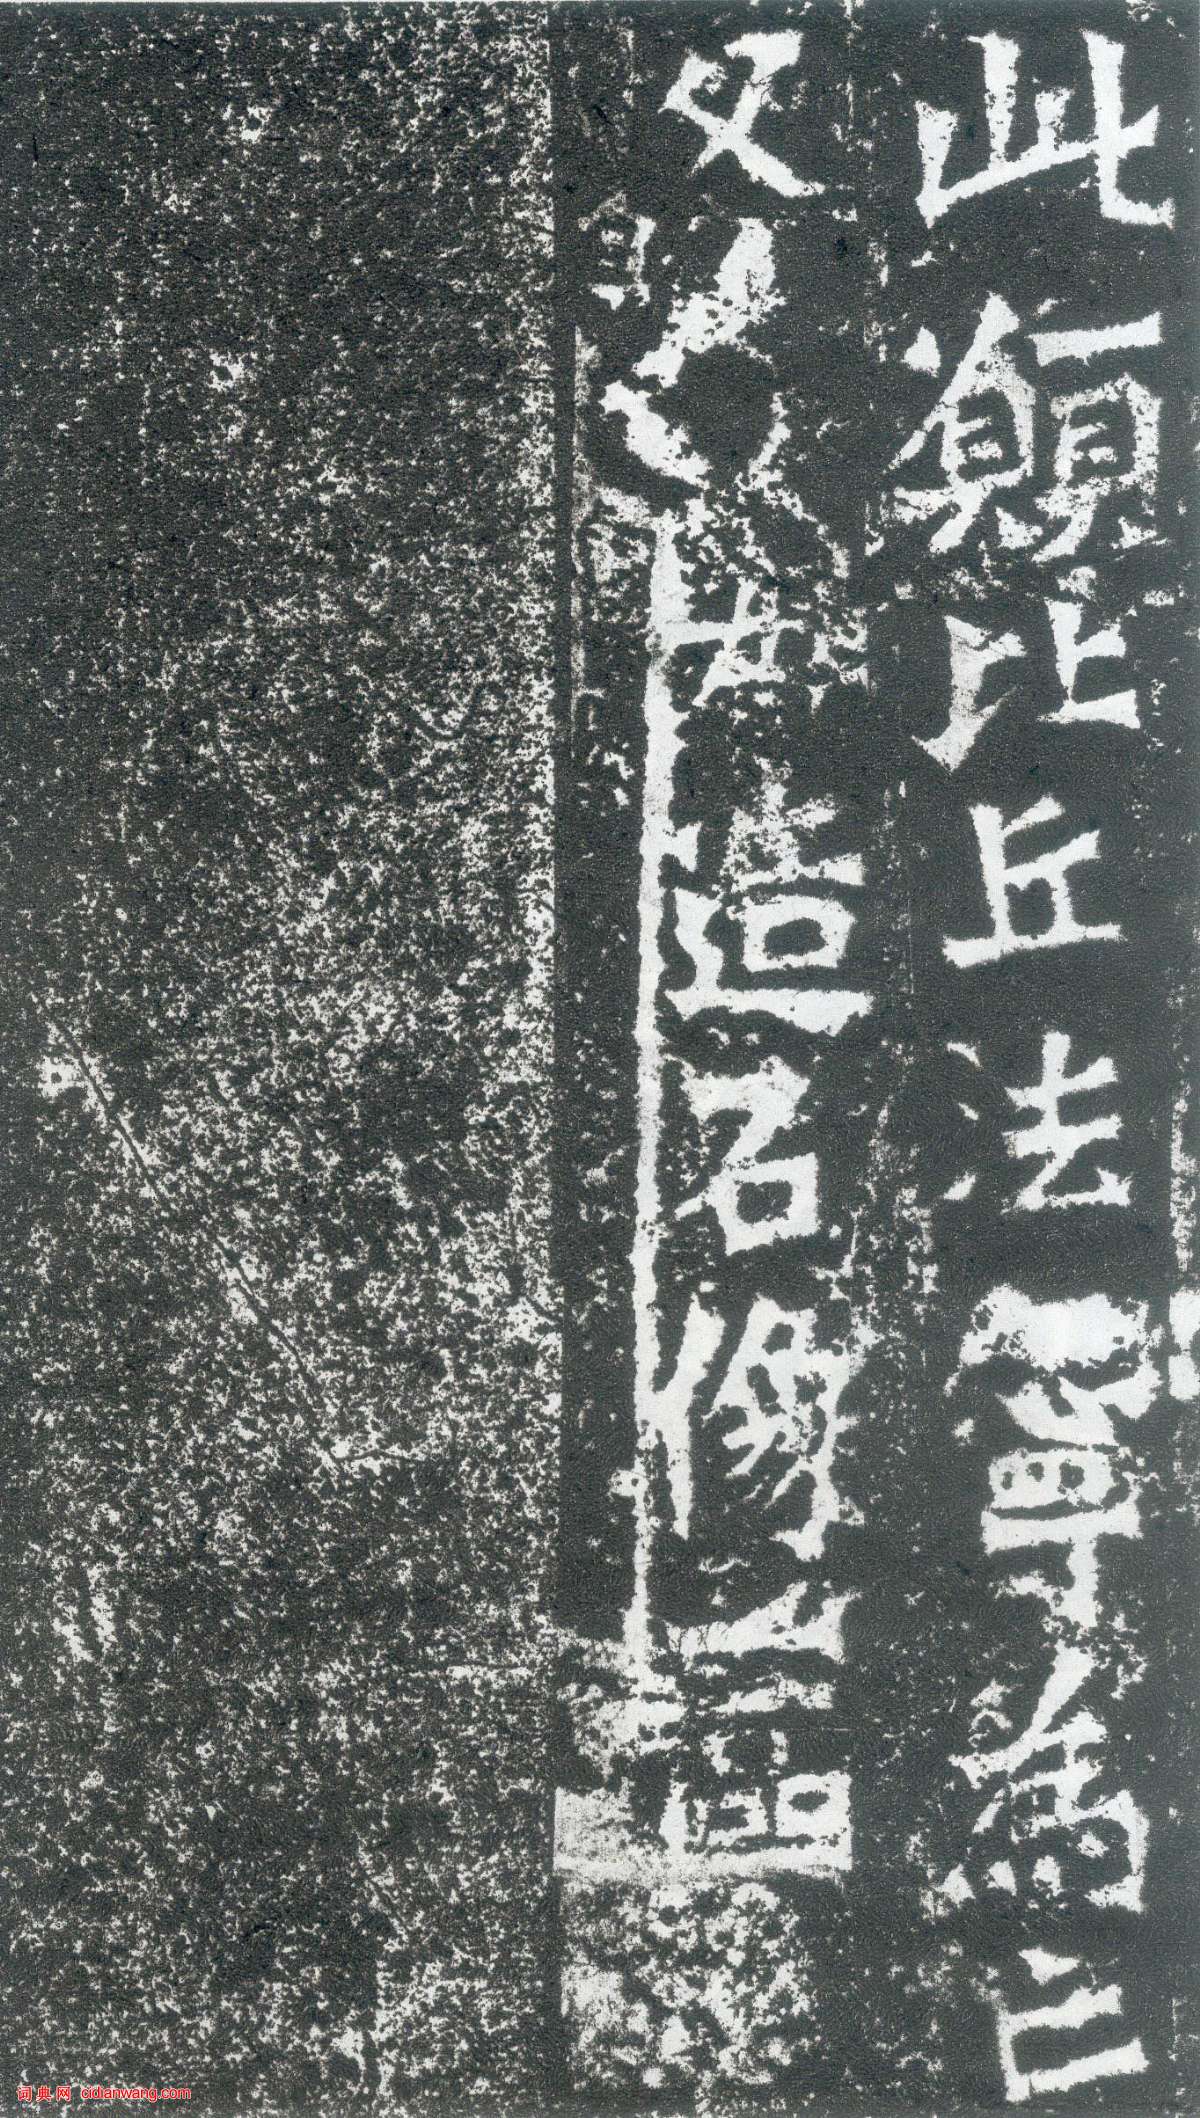 此願比丘法為亡
父造石像一區
词典网 cidianwang.com